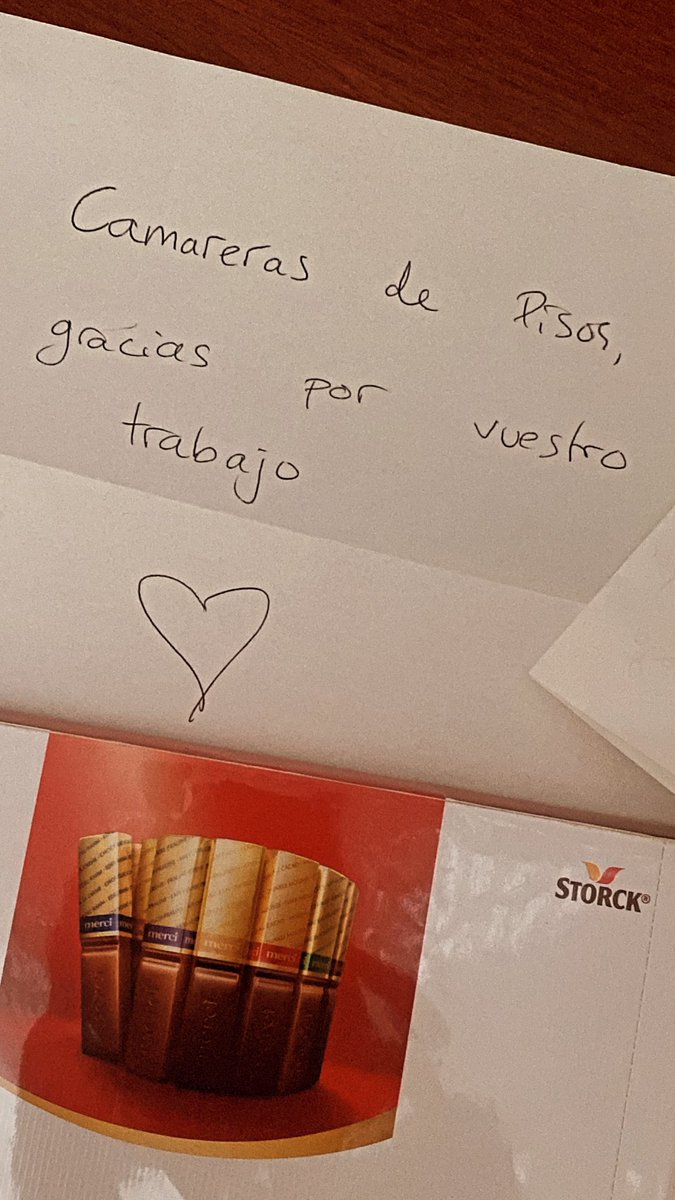 Camareras de Pisos,
gracias por vuestro
trabajo
STORCK®
merci
merci
merci